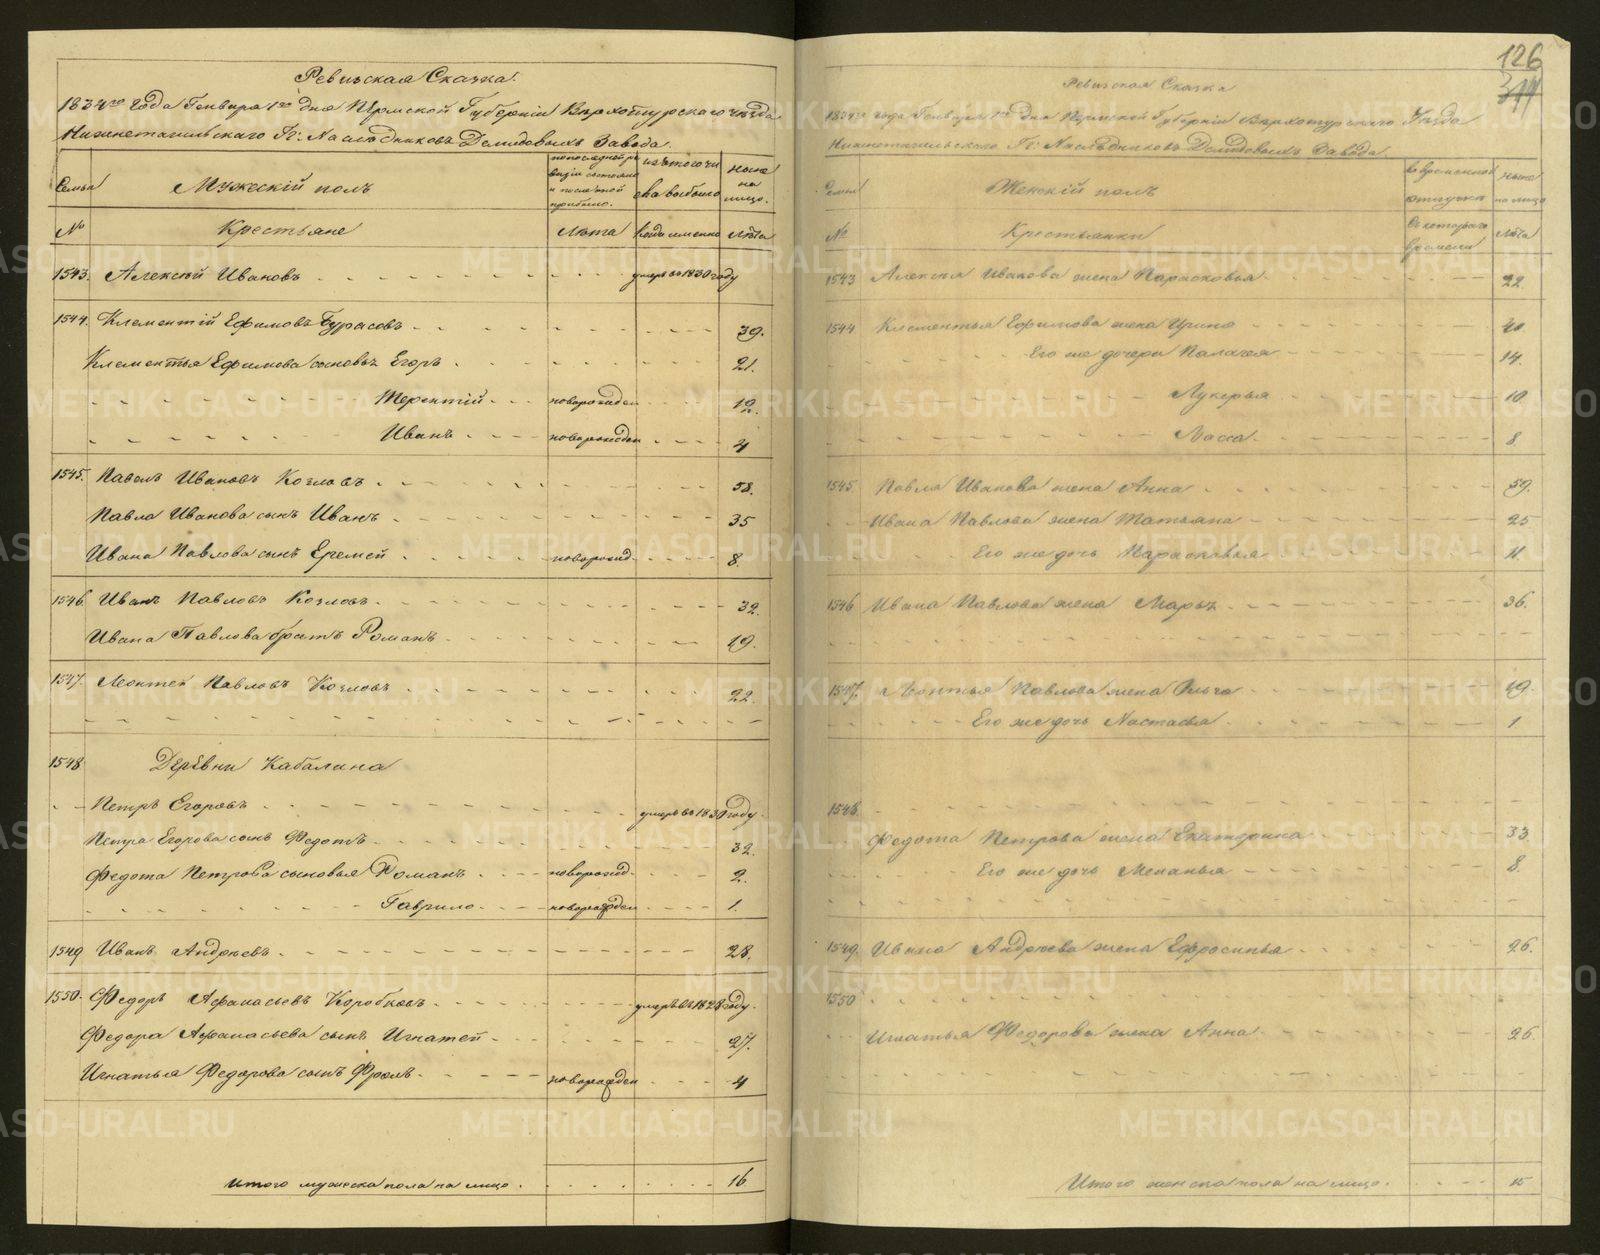 Ревизская Сказка.
1834го года Генваря 1го дня Пермской Губерніи Верхотурского уѣзда
Нижнетагильскаго Гг: Наслѣдниковъ Демидовыхъ Завода.
Семьи
Мужескій полъ
по последней ревизіи состояло и после оной прибыло.
изъ того числа выбыло
ныне на лицо.
№
Крестьяне
Лѣта
когда именно
Лѣта
1543. Алексѣй Ивановъ умеръ въ 1830 году
1544. Клементій Ефимовъ Бурасовъ 39.
Клементья Ефимова сыновья Егоръ 21.
Терентій новорожден 12
Иванъ новорожден 4
1545. Павелъ Ивановъ Козловъ 58.
Павла Иванова сынъ Иванъ 35
Ивана Павлова сынъ Еремей новорожд. 8.
1546. Иванъ Павловъ Козловъ 32.
Ивана Павлова братъ Романъ 19.
1547. Леонтей Павловъ Козловъ 22.
1548. Деревни Кабалина
Петръ Егоровъ умеръ въ 1830 году.
Петра Егорова сынъ Федотъ 32.
Федота Петрова сыновья Романъ новорожд. 2.
Гаврило новорожден 1.
1549 Иванъ Андреевъ 28.
1550. Федоръ Афанасьевъ Коробковъ умеръ въ 1828 году.
Федора Афанасьева сынъ Игнатей 27.
Игнатья Федорова сынъ Фролъ новорожден 4
Итого мужеска пола на лицо. 16
126
344
Ревизская Сказка
1834го года Генваря 1го дня Пермской Губерніи Верхотурскаго Уѣзда
Нижнетагильского Гг: Наслѣдниковъ Демидовыхъ Завода
Семьи
Женскій полъ
во временной отлучкѣ
ныне на лицо
№
Крестьянки
Съ котораго времени
Лѣта
1543 Алексѣя Иванова жена Парасковья 22
1544 Клементья Ефимова жена Ирина 40
Его же дочери Палагея 14.
Лукерья 10.
8.
1545. Павла Иванова жена Анна 59.
Ивана Павлова жена Татьяна 25
Его же дочь Парасковья 11.
1546 Ивана Павлова жена Марья 36.
1547. Леонтья Павлова жена 19.
Его же дочь Настасья 1
1548.
Федота Петрова жена Екатерина 33
Его же дочь Меланья 8.
1549. Ивана Андреева жена Ефросинья 26.
1550
Игнатья Федорова жена Анна 26.
Итого женска пола на лицо. 15
METRIKI.GASO-URAL.RU